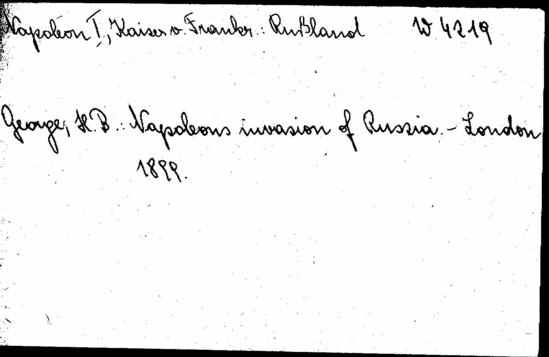 Napoleon I, Kaiser v. Frankr.: Rußland W 4219
George, H. B.: Napoleons invasion of Russia. - London
1899.